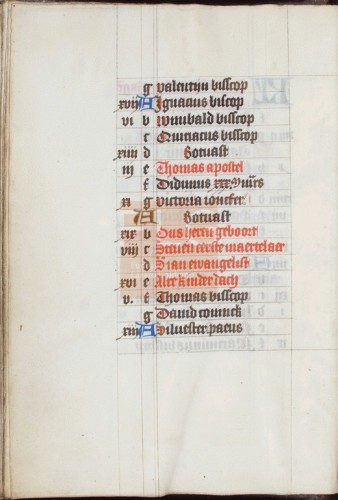 g valentijn bisscop
xvij A Ignacius biscop
vi b wunibald bisscop
c Quiriacus bisscop
xiiij d Botvast
iij e Thomas apostel
f Didimus xxx m̅r̅s
xi g Victoria joncfer
A Botvast
xix b Ons heren geboort
viij c Steven eerste maertelaer
d Sian ewangelist
xvi e Alre kinder dach
v. f Thomas bisscop
g David coninck
xiij A Silvester paeus